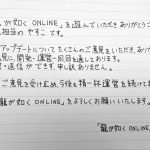 が如く ONLINE」を遊んでいただきありがとうご
担当の やすこです。
アップデートについてたくさんのご意見をいただき、ありが
意見に、開発・運営一同目を通しております。
返信ができず、申し訳ありません。
ご意見を受け止め、今後も精一杯運営を続けて
龍が如く ONLINE」をよろしくお願いいたします。
「龍が如く ONLINE